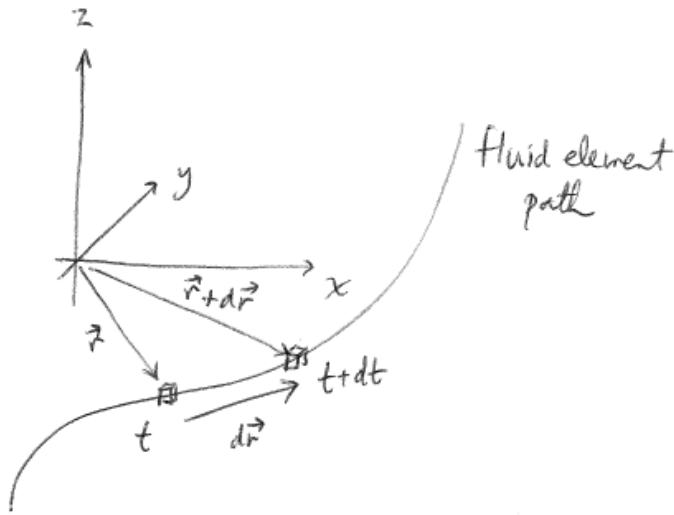 z
y
fluid element
path
x
r⃗+dr⃗
r⃗
t+dt
t
dr⃗